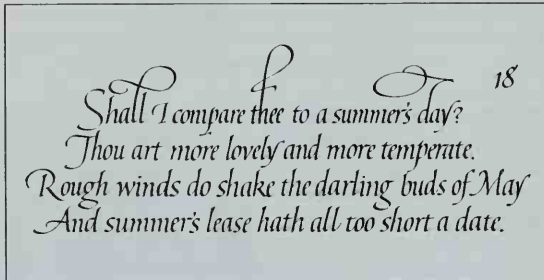 18
Shall I compare thee to a summer's day?
Thou art more lovely and more temperate.
Rough winds do shake the darling buds of May
And summer's lease hath all too short a date.